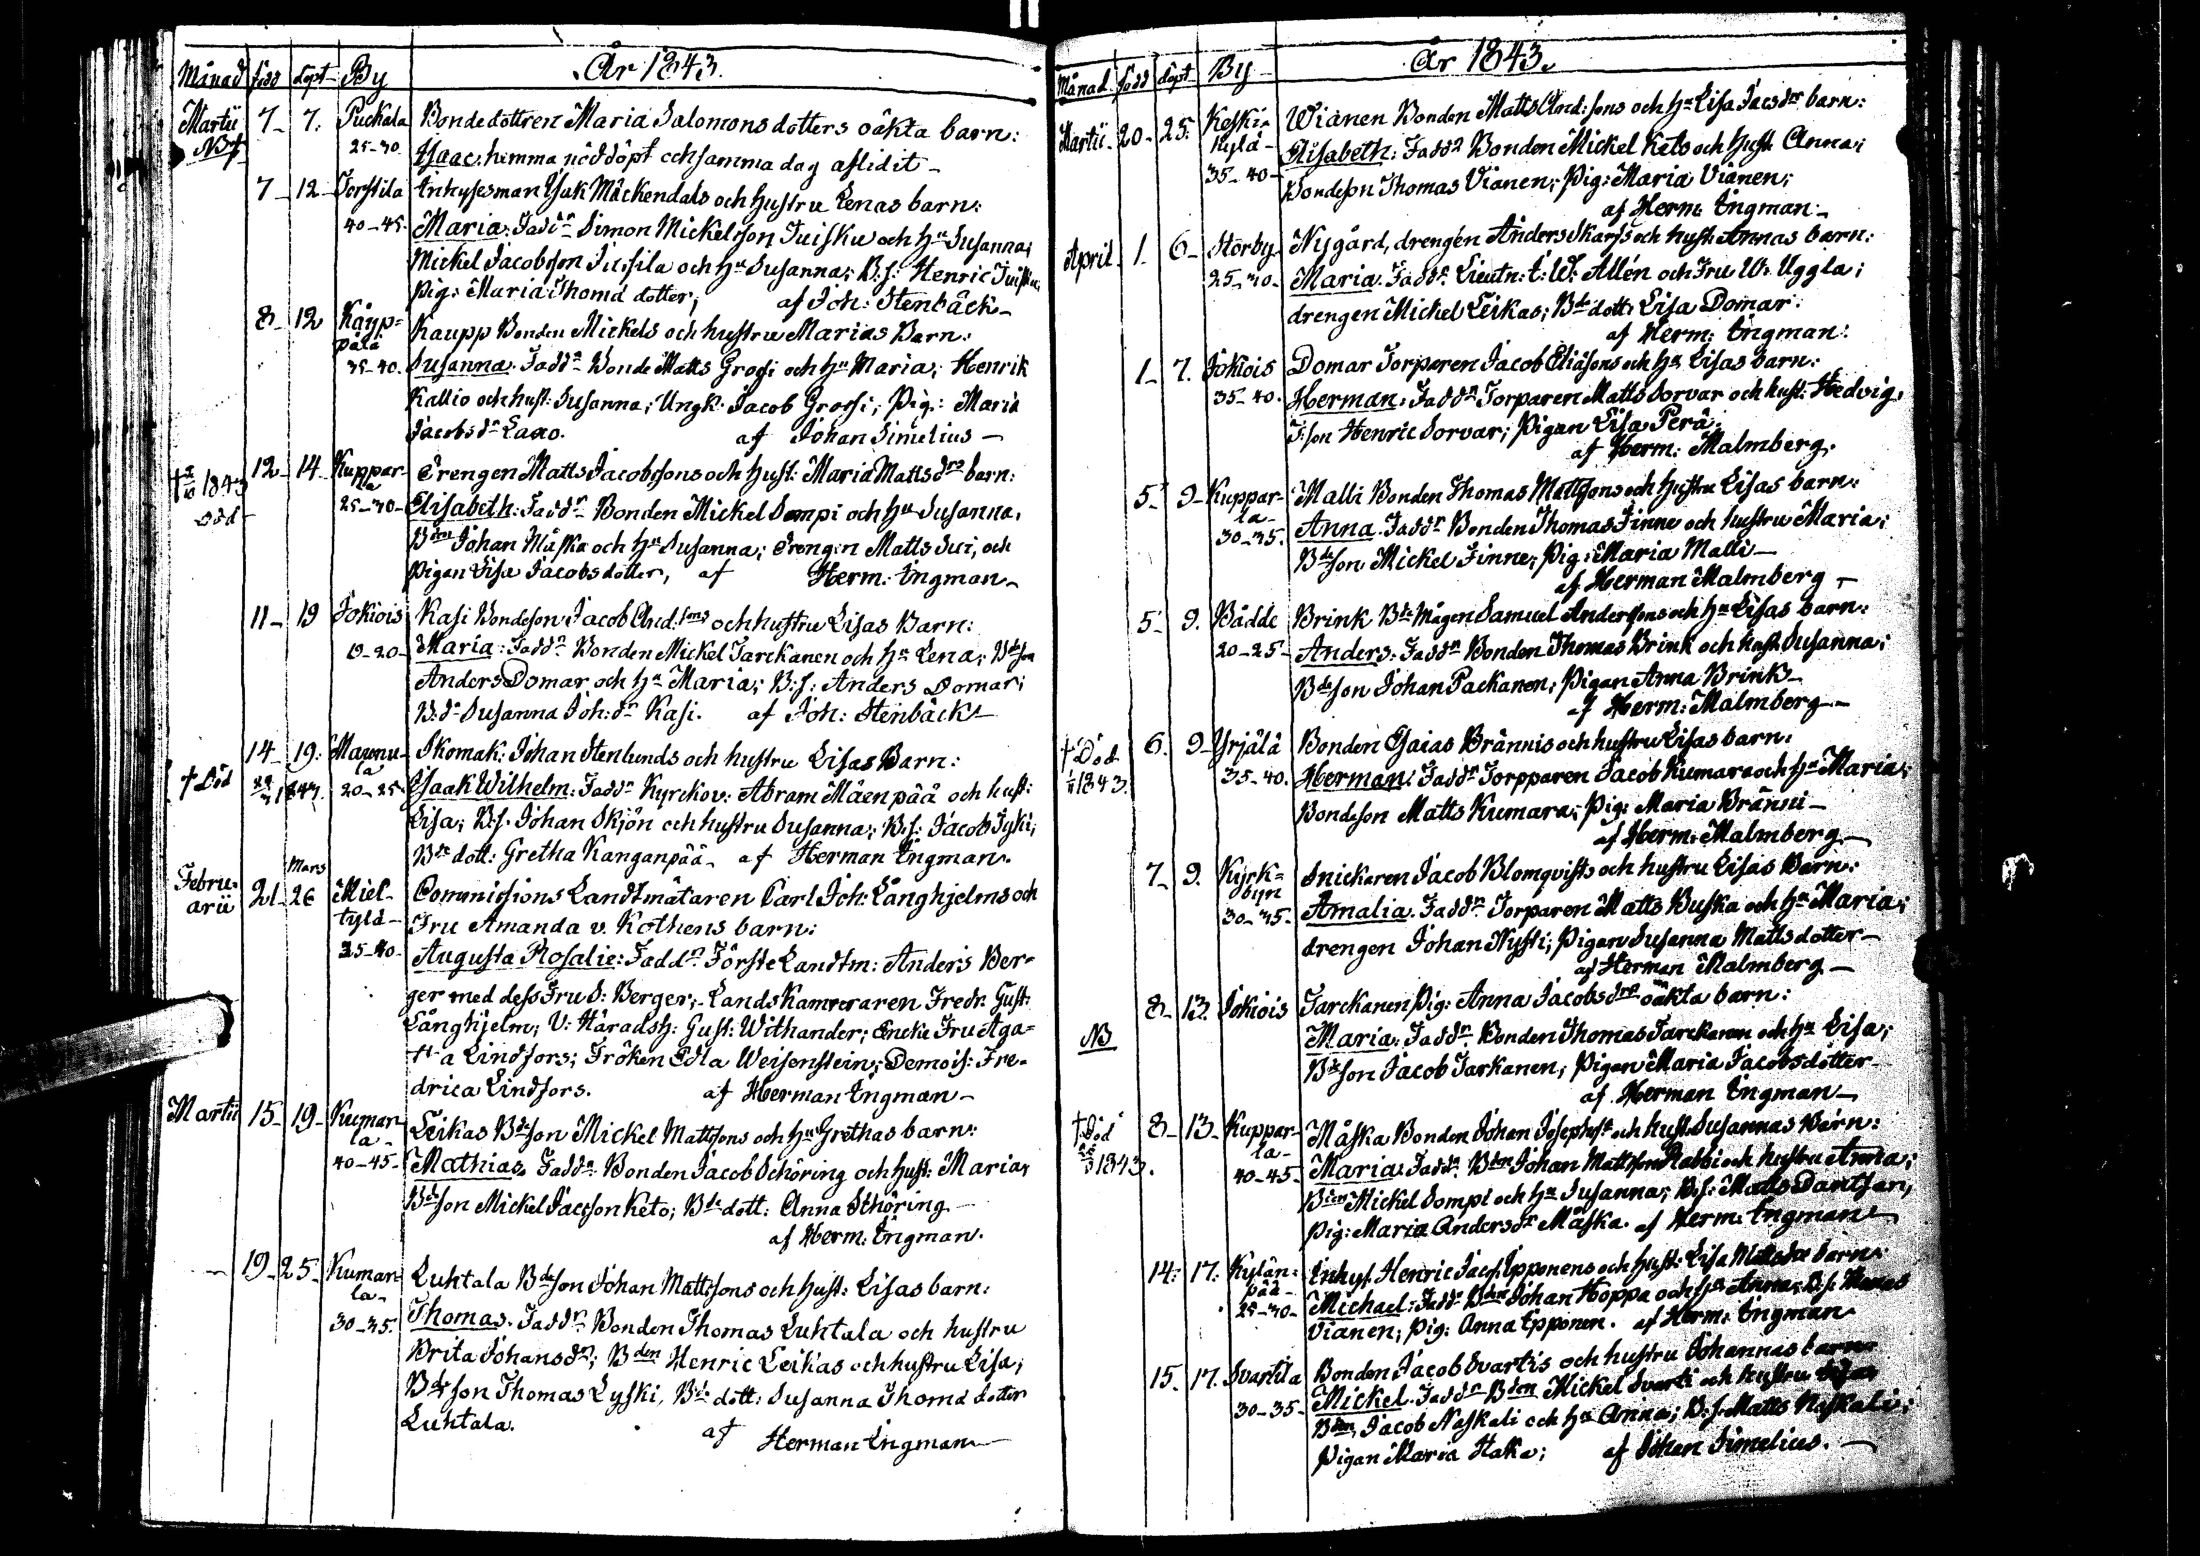 År 1843.
Månad född döpt By
Martii 7. 7. Puckala Bondedottren Maria Salomons dotters oäkta barn:
NB† 25-30. Isaac. hemma nöddöpt och samma dag aflidit
7 12 Torstila Inhysesman Isak Mäckendals och hustru Lenas barn:
40-45. Maria: Fadd:r Simon Mickelsson Tuisku och H:u Susanna;
Mickel Jacobsson och H:u Susanna; B:s: Henric Tuisku,
Pig: Maria Thomæ dotter; af Joh: Stenbäck
8 12 Käyppälä Kaupp Bonden Mickels och hustru Marias Barn:
35-40. Susanna. Fadd:r Bonde Matts Grossi och H:u Maria; Henrik
Kallio och hust: Susanna; Ungk: Jacob Grossi; Pig: Maria
Jacobs d:r Laxo. af Johan Simelius
† 1843 död 12 14 Kupparla Drengen Matts Jacobssons och Hust: Maria Matts d:rs barn:
25-30 Elisabeth: Fadd:r Bonden Mickel Sompi och H:u Susanna,
B:den Johan Måska och H:u Susanna; Drengen Matts Sui, och
Pigan Lisa Jacobsdotter, af Herm. Engman
11 19 Jokiois Kasi Bondeson Jacob And:sons och hustru Lisas Barn:
19-20 Maria: Fadd:r Bonden Mickel Tarckanen och H:u Lena; B:de son
Anders Domar och H:u Maria; B:s: Anders Domar;
B:d:r Susanna Joh:d:r Kasi. af Joh: Stenbäck
14 19. Maunula Skomak: Johan Stenlunds och hustru Lisas Barn:
† Död 1847. 20-25 Isaak Wilhelm: Fadd:r Kyrckov: Abram Mäenpää och hust:
Lisa; B:s. Johan Skjön och hustru Susanna; B:s: Jacob Jyki;
B:de dott: Gretha Kanganpää af Herman Engman.
Februarii 21 Mars 26 Mieltylä Commissions Landtmätaren Carl Joh: Långhjelms och
Fru Amanda v. Kothens barn:
35-40 Augusta Rosalie: Fadd:r Förste Landtm: Anders Berger
med dess Fru S: Berger; Lands Kamreraren Fredr. Gust:
Långhjelm; V: Häradsh: Gust: Withander; Encke Fru Agatha
Lindfors; Fröken Edla Weisenstein; Demois: Fredrica
Lindfors. af Herman Engman
Martii 15 19 Kumarla Leikas B:de son Mickel Mattssons och H:u Grethas barn:
40-45 Mathias. Fadd:r Bonden Jacob Schöring och Hust: Maria;
B:de son Mickel Jacsson Keto; B:de dott: Anna Schöring
af Herm: Engman.
19 25 Kumarla Luhtala B:de son Johan Mattssons och Hust: Lisas barn:
30-35. Thomas. Fadd:r Bonden Thomas Luhtala och hustru
Brita Johansd:r; B:den Henric Leikas och hustru Lisa;
B:de son Thomas Lyski, B:de dott: Susanna Thomæ dotter
Luhtala. af Herman Engman
År 1843.
Månad född döpt By
Martii 20 25. Keskikylä Wianen Bonden Matts And:sons och H:u Lisa Jacsd:rs barn:
35-40 Elisabeth: Fadd:r Bonden Mickel Keto och Hust Anna;
Bondeson Thomas Vianen; Pig: Maria Vianen;
af Herm: Engman
April 1 6 Storby Nygård, drengen Anders Skarps och hust: Annas barn:
25-30 Maria. Fadd:r Lieutn: C: W: Allén och Fru W. Uggla;
drengen Mickel Leikas; B:de dott: Lisa Domar:
af Herm: Engman:
1 7. Jokiois Domar Torparen Jacob Eliäsons och H:u Lisas barn:
35-40. Herman: Fadd:r Torparen Matts Sorvar och hust: Hedvig;
T:son Henric Sorvar; Pigan Lisa Perä.
af Herm: Malmberg.
5 9 Kupparla Malli Bonden Thomas Mattssons och Hustru Lisas barn:
30-35. Anna. Fadd:r Bonden Thomas Finne och hustru Maria;
B:de son Mickel Finne; Pig: Maria Malli
af Herman Malmberg
5 9. Bådde Brink B:de Mågen Samuel Anderssons och H:u Lisas barn:
20-25 Anders: Fadd:r Bonden Thomas Brink och hust: Susanna;
B:de son Johan Packanen; Pigan Anna Brink
af Herm: Malmberg
† Död 1843. 6. 9 Yrjälä Bonden Esaias Brännis och hustru Lisas barn:
35-40. Herman. Fadd:r Torpparen Jacob Kumara och H:u Maria;
Bondeson Matts Kumara; Pig: Maria Bränni
af Herm: Malmberg
7 9. Kyrkbyn Snickaren Jacob Blomqvists och hustru Lisas Barn:
30-35. Amalia. Fadd:r Torparen Matts Buska och H:u Maria;
drengen Johan Nysti; Pigan Susanna Mattsdotter
af Herman Malmberg
8 13. Jokiois Tarckanen Pig: Anna Jacobsd:rs oäkta barn:
NB Maria: Fadd:r Bonden Thomas Tarckanen och H:u Lisa;
B:de son Jacob Tarkanen, Pigan Maria Jacobsdotter
af Herman Engman
† Död 1843. 8 13 Kupparla Måska Bonden Johan Josephs: och hust: Susannas Barn:
40-45 Maria: Fadd:r B:den Johan Mattsson Rabbi och hustru Anna;
B:den Mickel Sompi och H:u Susanna; B:s: Matts Dantsan,
Pig: Maria Andersd:r Måska. af Herm: Engman
14. 17. Kylänpää Inhys. Henric Jacs: Epponens och Hust: Lisa Mattsd:rs barn:
25-30 Michael: Fadd:r B:den Johan Hoppa och H:u Anna; B:s. Thomas
Vianen; Pig: Anna Epponen. af Herm: Engman
15 17. Svartila Bonden Jacob Svartis och hustru Johannas barn
30-35 Mickel. Fadd:r B:den Mickel Svarti och hustru Lisa
B:den Jacob Naskali och H:u Anna; B:s: Matts Naskali;
Pigan Maria Haka; af Johan Simelius.